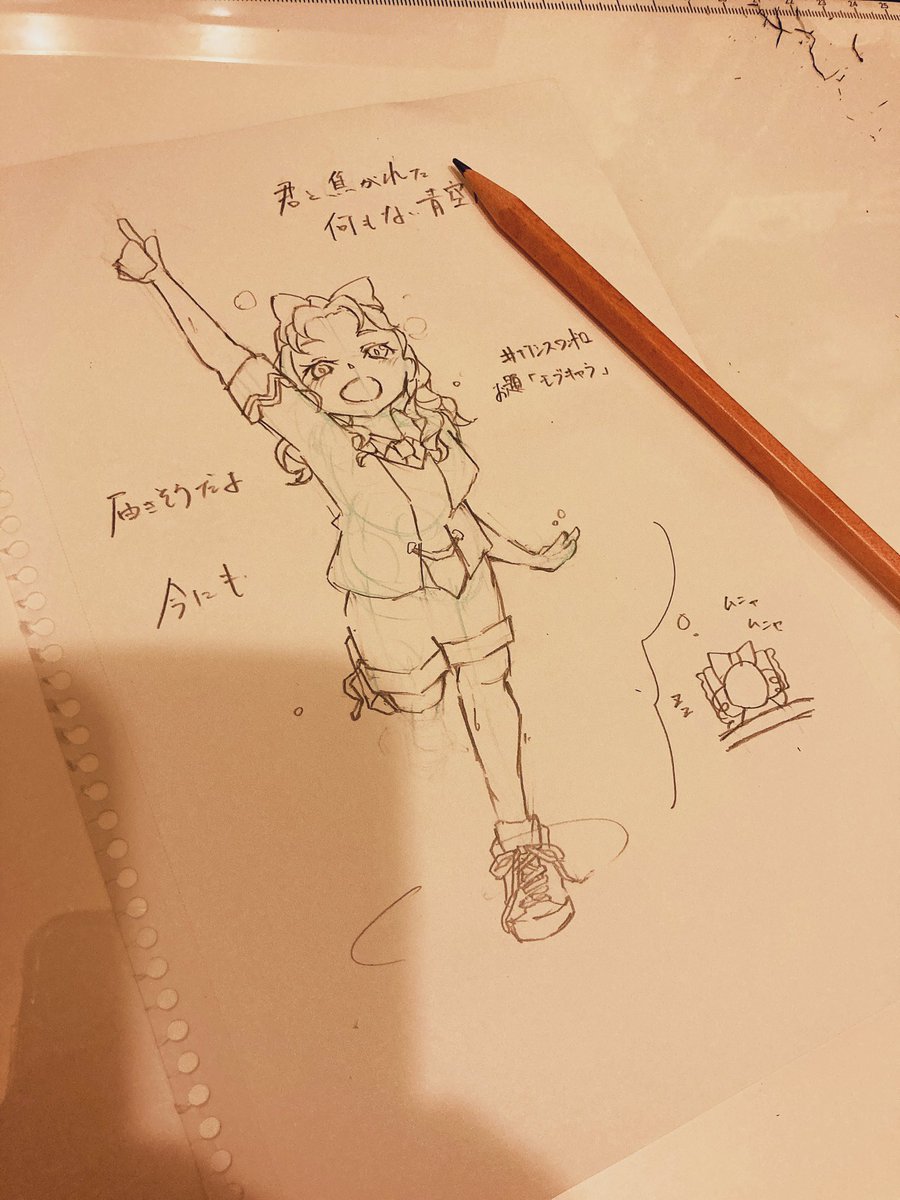 君と焦がれた
何もない青空
#ワンスワンホロ
お題「モブキャラ」
届きそうだよ
今にも
ムニャ
ムニャ
zz